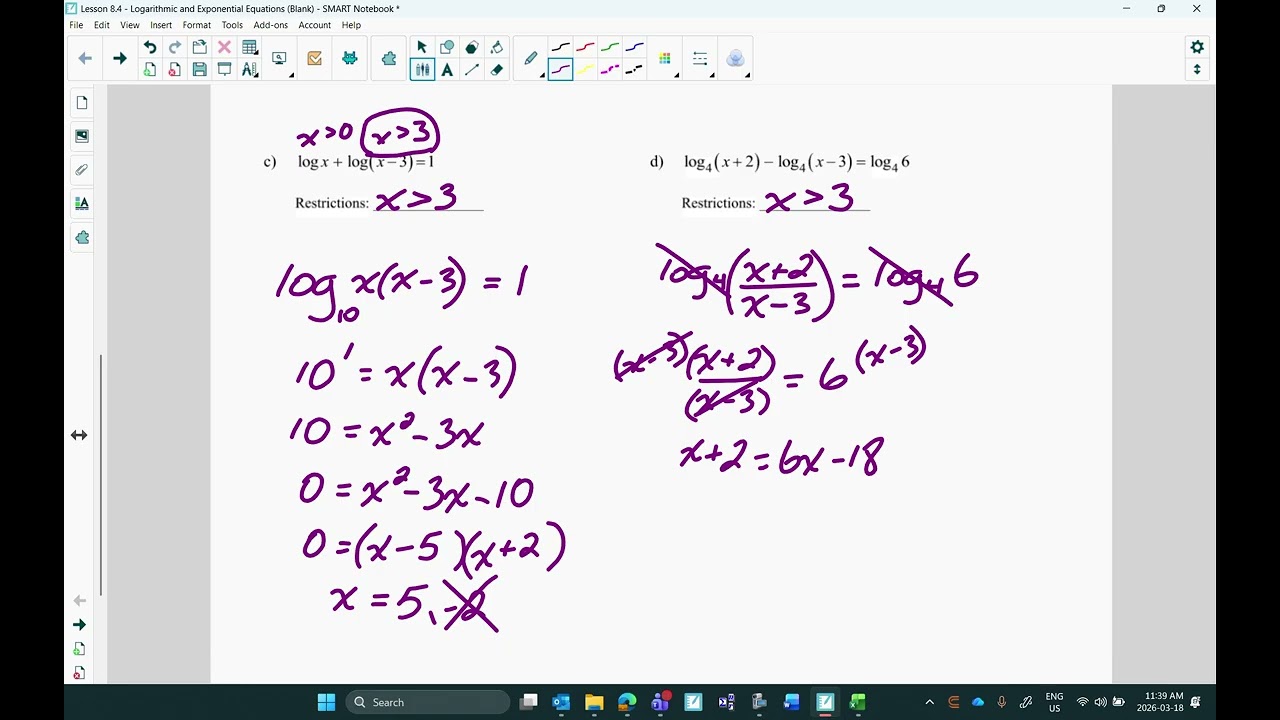 Lesson 8.4 - Logarithmic and Exponential Equations (Blank) - SMART Notebook *
File Edit View Insert Format Tools Add-ons Account Help
x>0 x>3
c) log x + log(x−3) = 1
Restrictions: x>3
log₁₀ x(x−3) = 1
10¹ = x(x−3)
10 = x²−3x
0 = x²−3x−10
0 = (x−5)(x+2)
x = 5, -2
d) log₄(x+2) − log₄(x−3) = log₄ 6
Restrictions: x>3
log₄((x+2)/(x−3)) = log₄ 6
(x−3)(x+2)/(x−3) = 6(x−3)
x+2 = 6x−18
Search
ENG
US
11:39 AM
2026-03-18